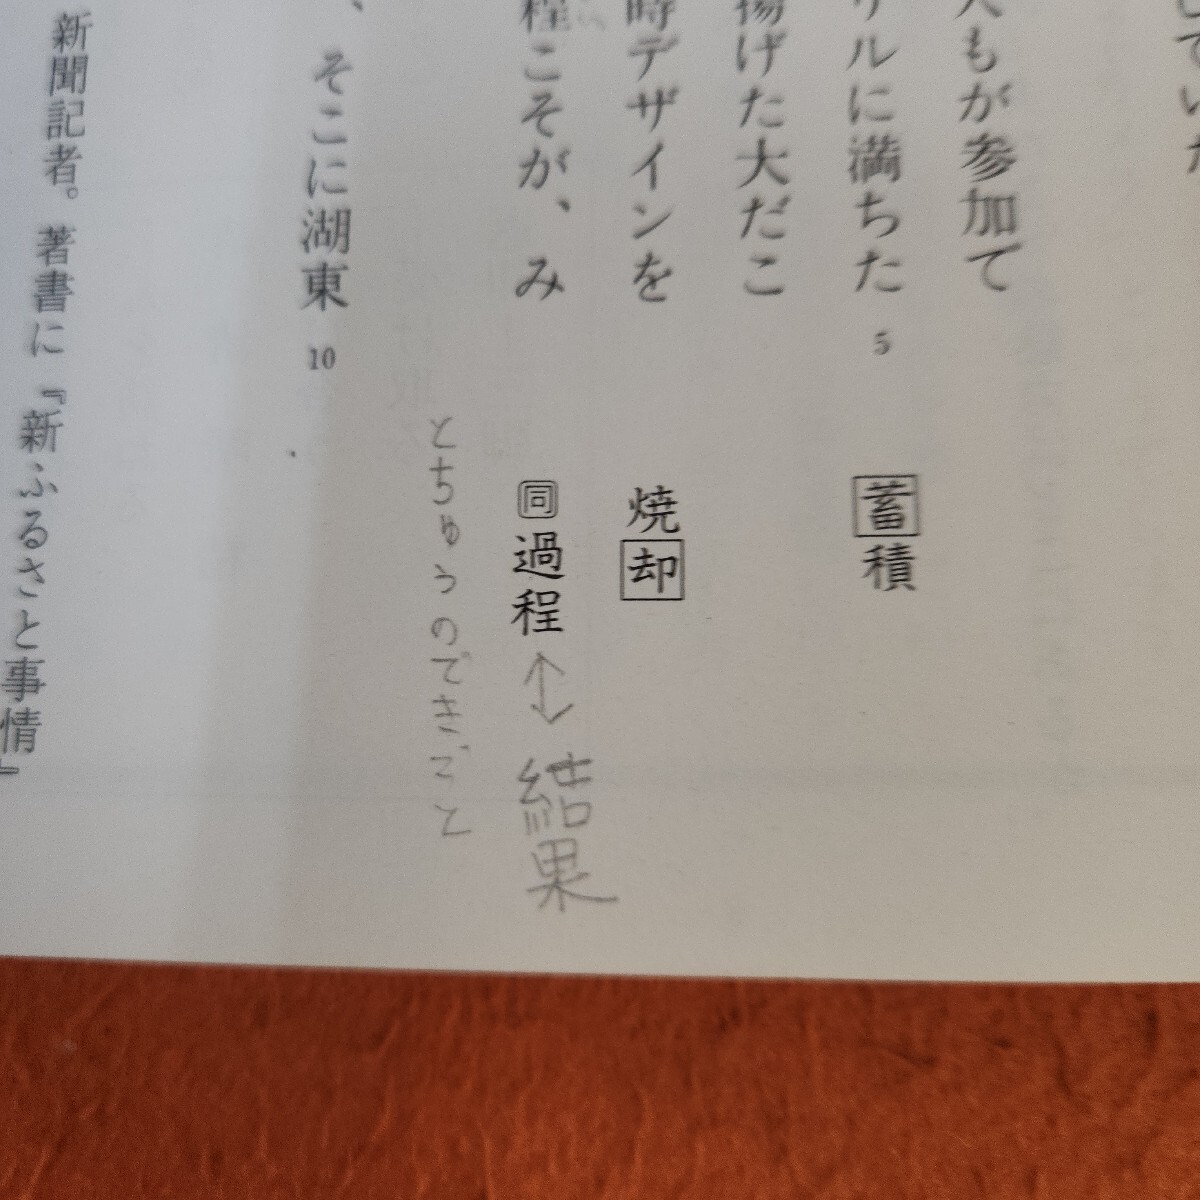 ていた
人もが参加て
リルに満ちた
5
蓄積
揚げた大だこ
時デザインを
焼却
程こそが、み
同過程↔結果
とちゅうのできごと
、そこに湖東
10
新聞記者。著書に『新ふるさと事情』